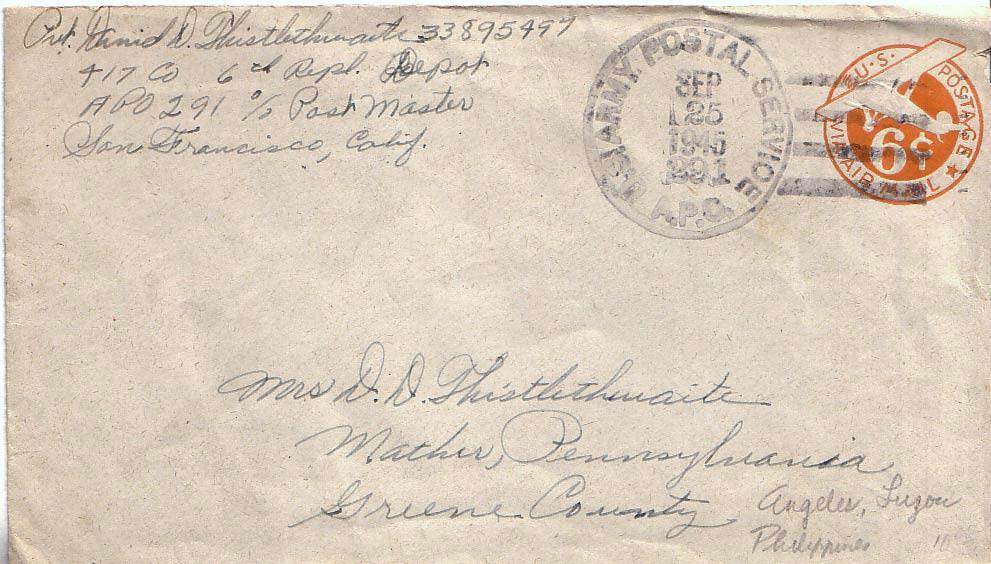 Pvt. David D. Thistlethwaite 33895497
417 Co 6th Repl. Depot
APO 291 % Post Master
San Francisco, Calif.
U.S. ARMY POSTAL SERVICE
SEP
25
1945
291
A.P.O.
U.S. POSTAGE
6¢
VIA AIR MAIL
Mrs D. D. Thistlethwaite
Mather, Pennsylvania
Greene County
Angeles, Luzon
Philippines